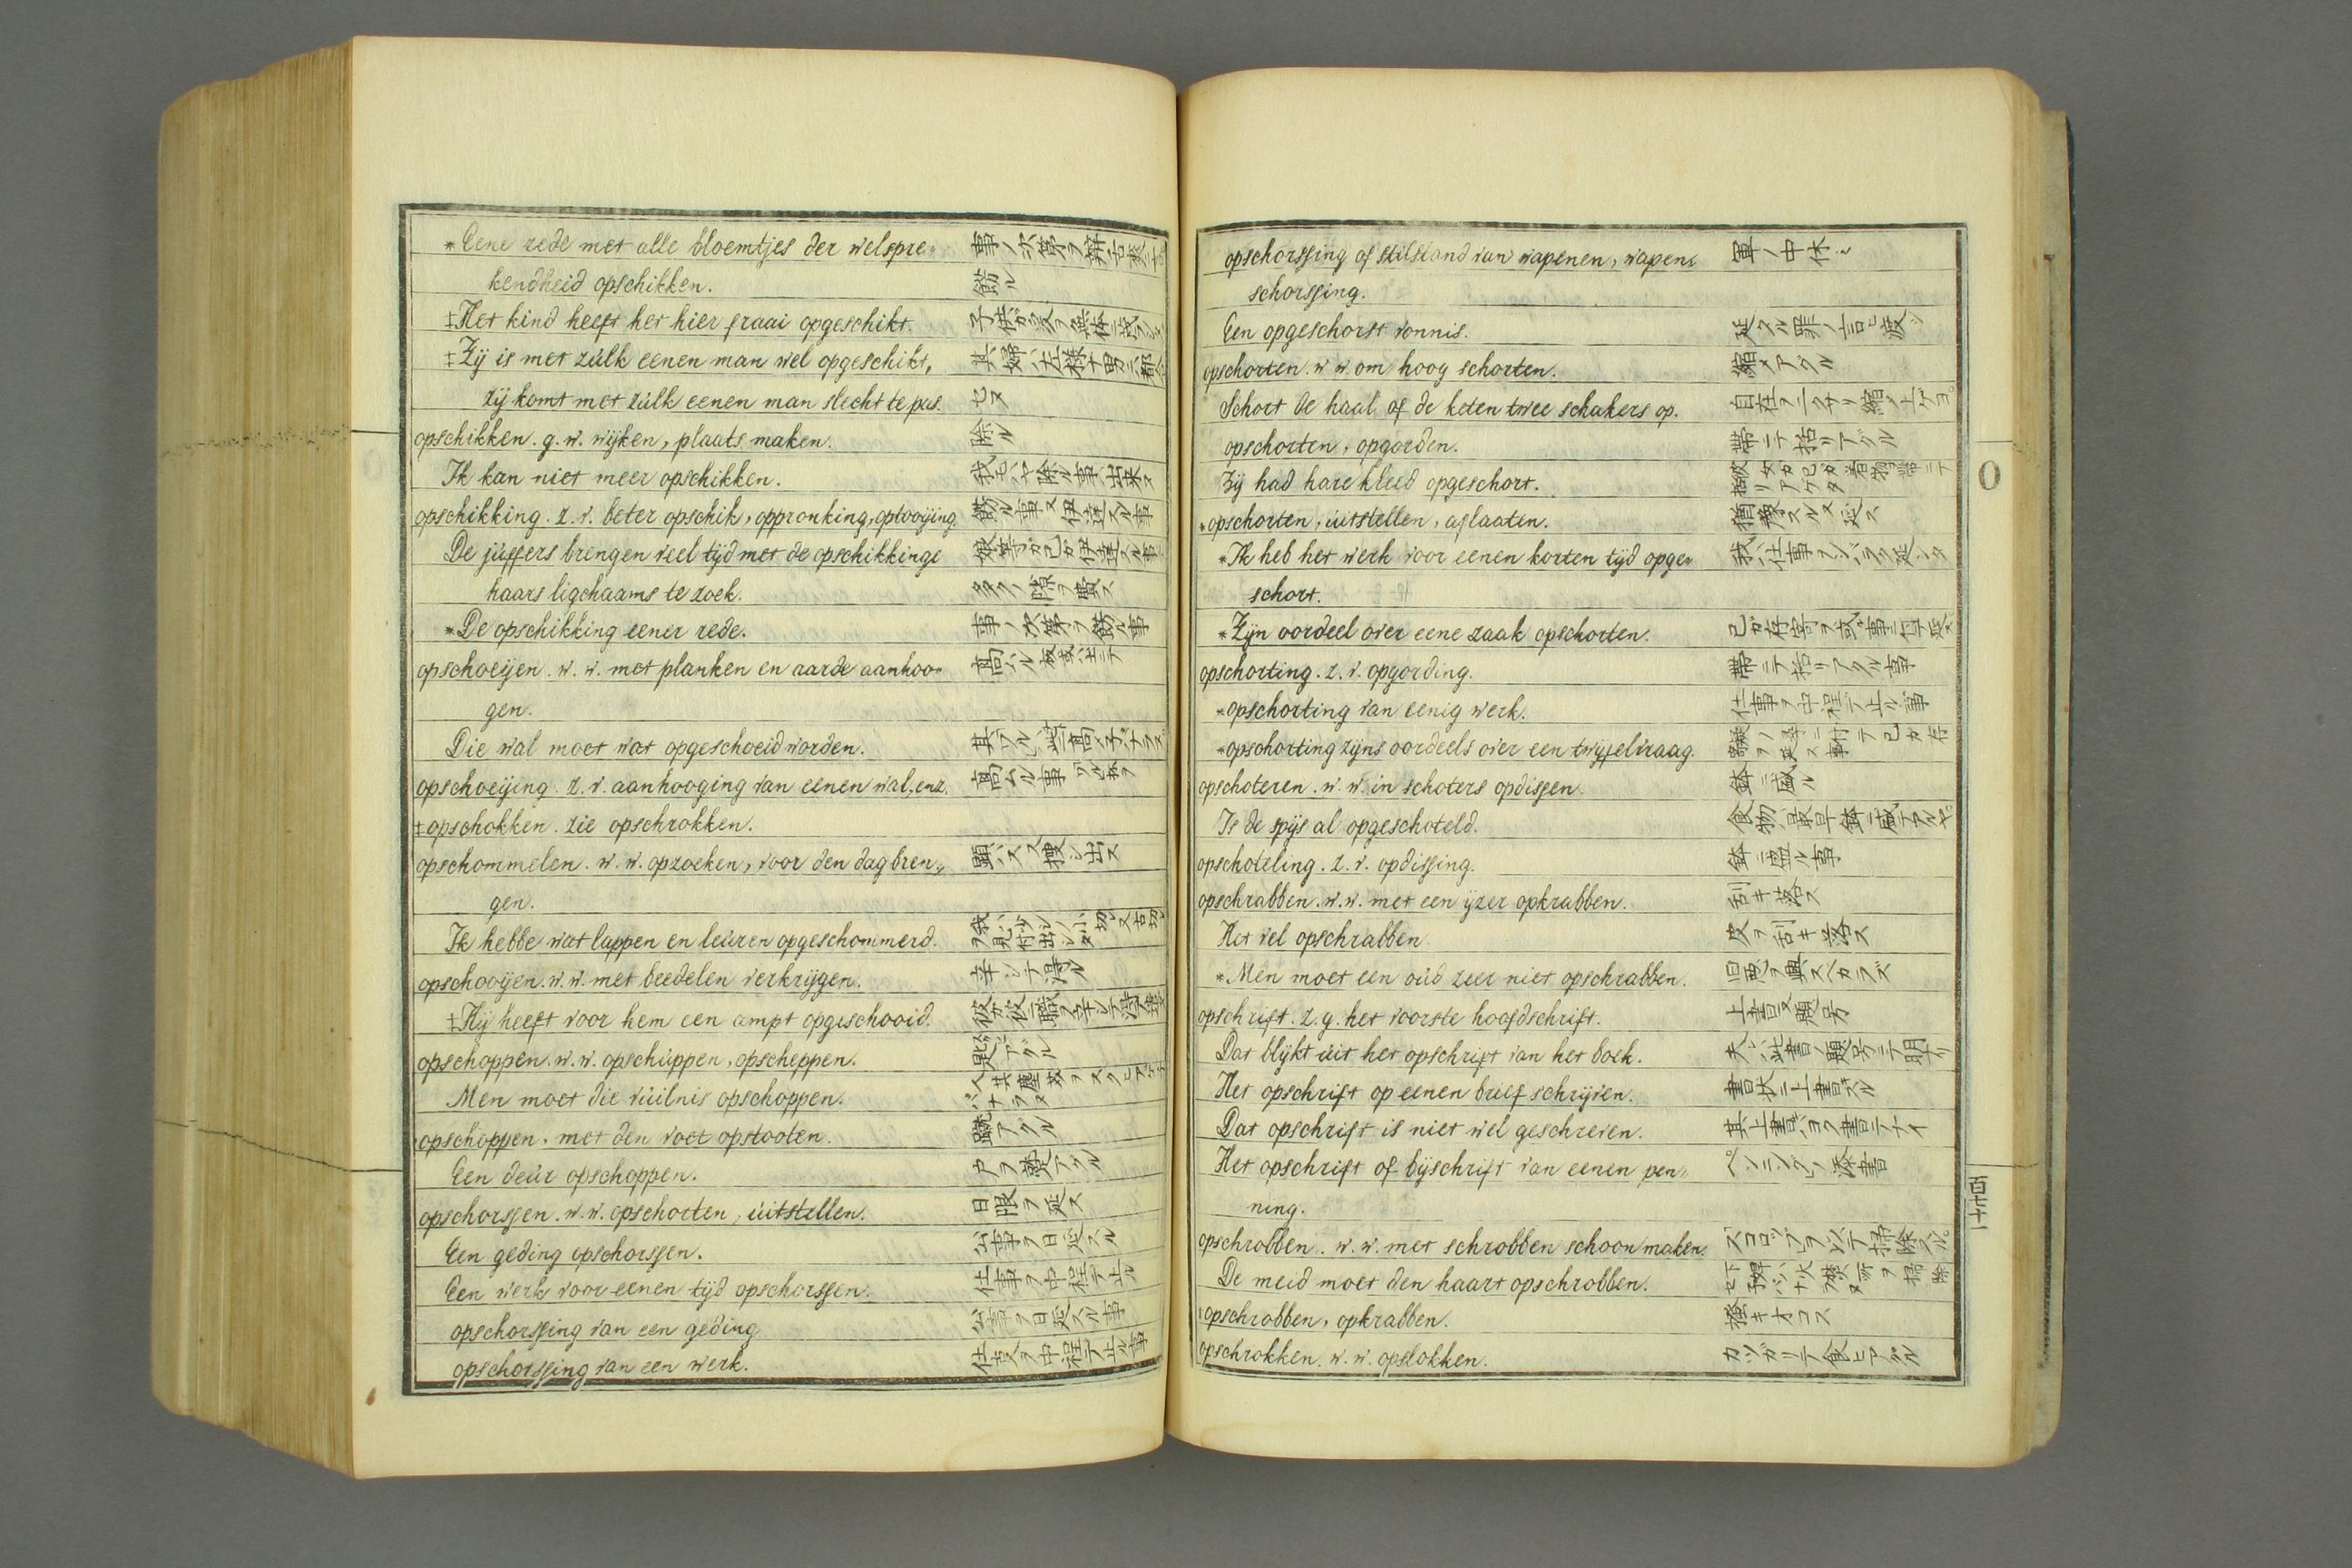 *Eene rede met alle bloemtjes der welspre„ 事ノ次第ヲ
kendheid opschikken. 飾ル
‡Het kind heeft het hier fraai opgeschikt. 子供ガ
‡Zij is met zúlk eenen man wel opgeschikt, 其婦ハ左様ナ男ニ
zij komt met zúlk eenen man slecht te pas. セヌ
opschikken. g. w. wijken, plaats maken. 除ル
Ik kan niet meer opschikken. 我モハヤ除ル事出来ヌ
opschikking. z. v. beter opschik, oppronking, optooijing. 飾ル事又伊達スル事
De júffers brengen veel tijd met de opschikkinge 娘等ガ己ガ伊達スル事
haars ligchaams te zoek. 多クノ隙ヲ費ス
*De opschikking eener rede. 事ノ次第ヲ飾ル事
opschoeijen. w. w. met planken en aarde aanhoo„ 高メル
gen.
Die wal moet wat opgeschoeid worden. 其
opschoeijing. z. v. aanhooging van eenen wal, enz. 高メル事
‡opschokken. zie opschrokken.
opschommelen. w. w. opzoeken, voor den dag bren„ 顕ハス又捜シ出ス
gen.
Ik hebbe wat lappen en leúren opgeschommerd.
opschooijen. w. w. met beedelen verkrijgen. 辛シテ得ル
‡Hij heeft voor hem een ampt opgeschooid.
opschoppen. w. w. opschúppen, opscheppen.
Men moet die vúilnis opschoppen.
opschoppen. met den voet opstooten. 蹴アグル
Een deúr opschoppen. 戸ヲ蹴アグル
opschorssen. w. w. opschorten, úitstellen. 日限ヲ延ス
Een geding opschorssen. 公事ヲ日延スル
Een werk voor eenen tijd opschorssen. 仕事ヲ中程デ止ル
opschorssing van een geding 公事ヲ日延スル事
opschorssing van een werk. 仕事ヲ中程デ止ル事
opschorssing of stilstand van wapenen, wapen„ 軍ノ中休ミ
schorssing.
Een opgeschorst vonnis. 延タル罪ノ言ヒ渡シ
opschorten. w. w. om hoog schorten. 縮メアグル
Schort de haal of de keten twee schakers op. 自在ヲ二クサリ縮メ上ゲヨ
opschorten, opgorden. 帯ニテ括リアグル
Zij had hare kleed opgeschort. 彼女ガ己ガ着物帯ニテ括リアゲタ
*opschorten, úitstellen, aflaaten. 猶豫スル又延ス
*Ik heb het werk voor eenen korten tijd opge„ 我ハ仕事ヲシバラク延シタ
schort.
*Zijn oordeel over eene zaak opschorten.
opschorting. z. v. opgording. 帯ニテ括リアグル事
*opschorting van eenig werk. 仕事ヲ中程デ止ル事
*opschorting zijns oordeels over een twijfelvraag.
opschoteren. w. w. in schoters opdissen. 鉢ニ盛ル
Is de spijs al opgeschoteld. 食物ハ最早鉢ニ盛テアルヤ
opschoteling. z. v. opdissing. 鉢ニ盛ル事
opschrabben. w. w. met een ijzer opkrabben. 刮キ落ス
Het vel opschrabben. 皮ヲ刮キ落ス
*Men moet een oúd zeer niet opschrabben. 旧悪ヲ興スベカラズ
opschrift. z. g. het voorste hoofdschrift. 上書又題号
Dat blijkt úit het opschrift van het boek. 夫ハ此書ノ題号ニテ明ナリ
Het opschrift op eenen brief schrijven. 書状ニ上書スル
Dat opschrift is niet wel geschreven. 其上書ハヨク書テナイ
Het opschrift of bijschrift van eenen pen„ ペンニングノ添書
ning.
opschrobben. w. w. met schrobben schoon maken. ヲ以テ掃除スル
De meid moet den haart opschrobben.
‡opschrobben, opkrabben. 掻キオコス
opschrokken. w. w. opslokken. ガツガリテ食ヒアグル
O
百七十一